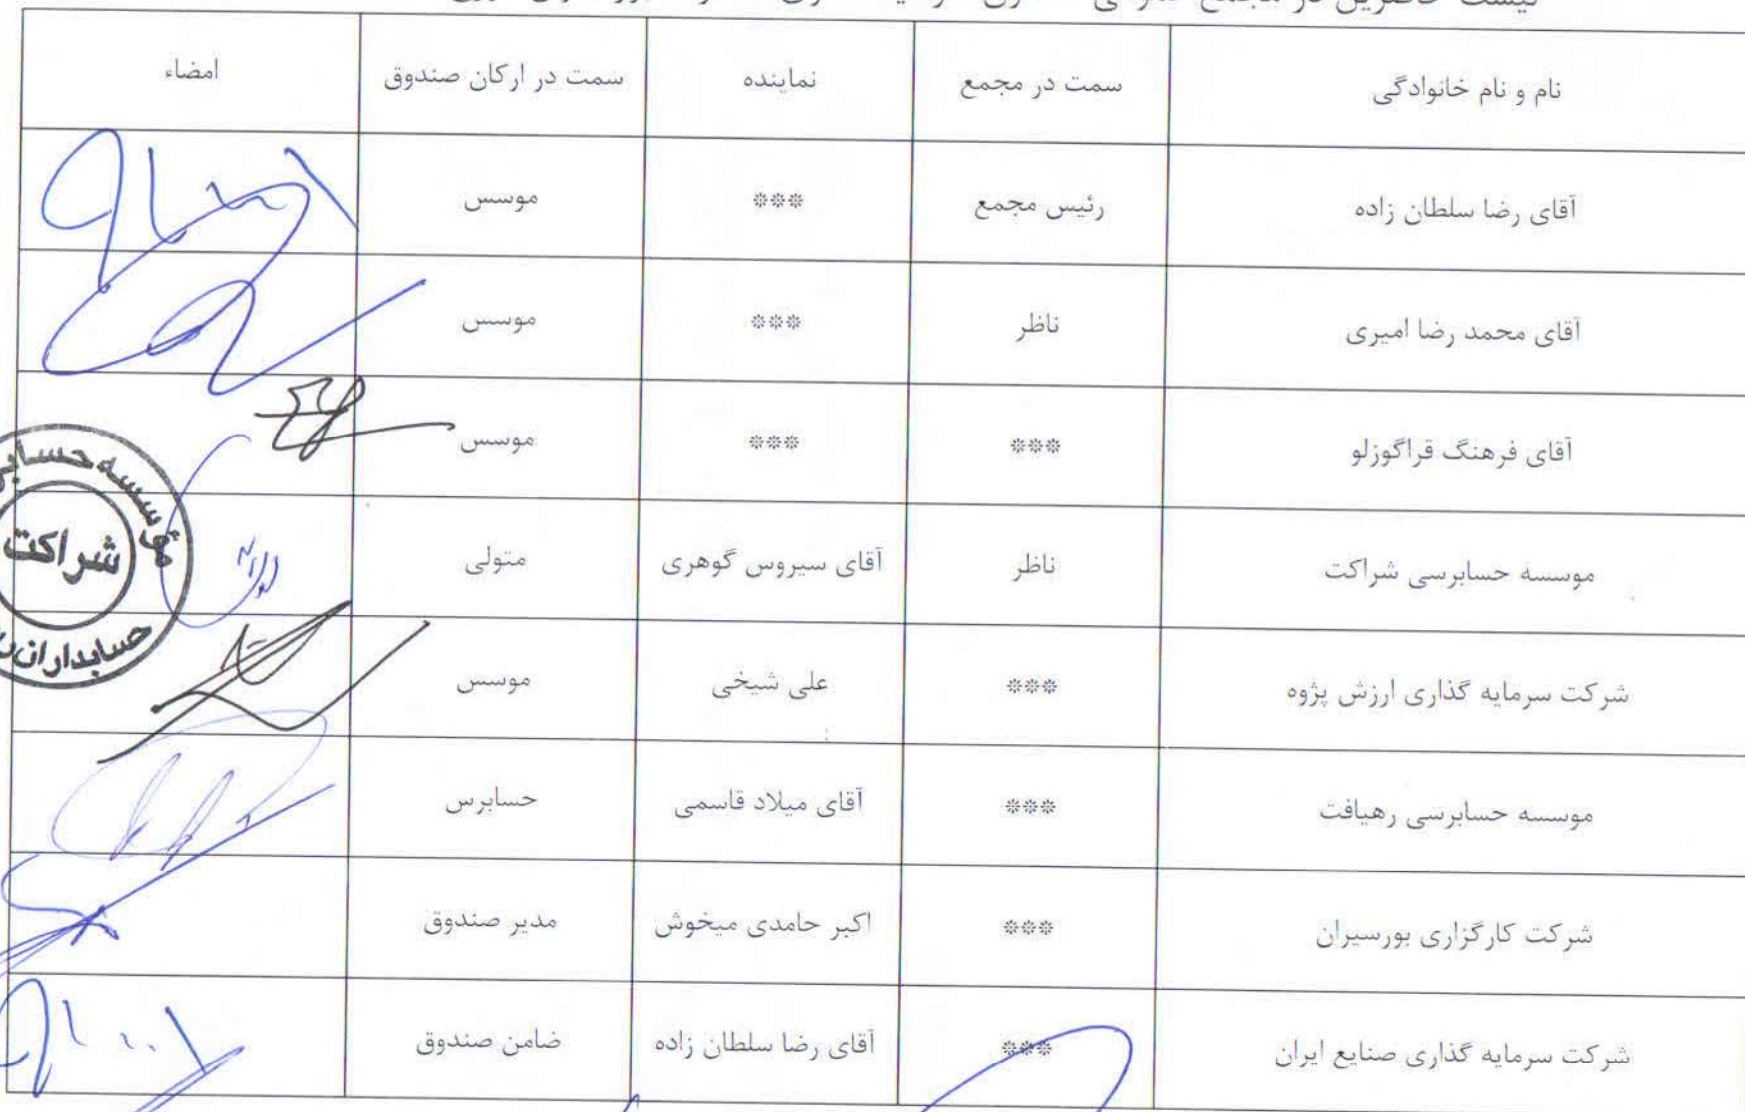 لیست حاضرین در مجمع
نام و نام خانوادگی سمت در مجمع نماینده سمت در ارکان صندوق امضاء
آقای رضا سلطان زاده رئیس مجمع *** موسس
آقای محمد رضا امیری ناظر *** موسس
آقای فرهنگ قراگوزلو *** *** موسس
موسسه حسابرسی شراکت ناظر آقای سیروس گوهری متولی
شرکت سرمایه گذاری ارزش پژوه *** علی شیخی موسس
موسسه حسابرسی رهیافت *** آقای میلاد قاسمی حسابرس
شرکت کارگزاری بورسیران *** اکبر حامدی میخوش مدیر صندوق
شرکت سرمایه گذاری صنایع ایران *** آقای رضا سلطان زاده ضامن صندوق
مؤسسه
شراکت
حسابداران